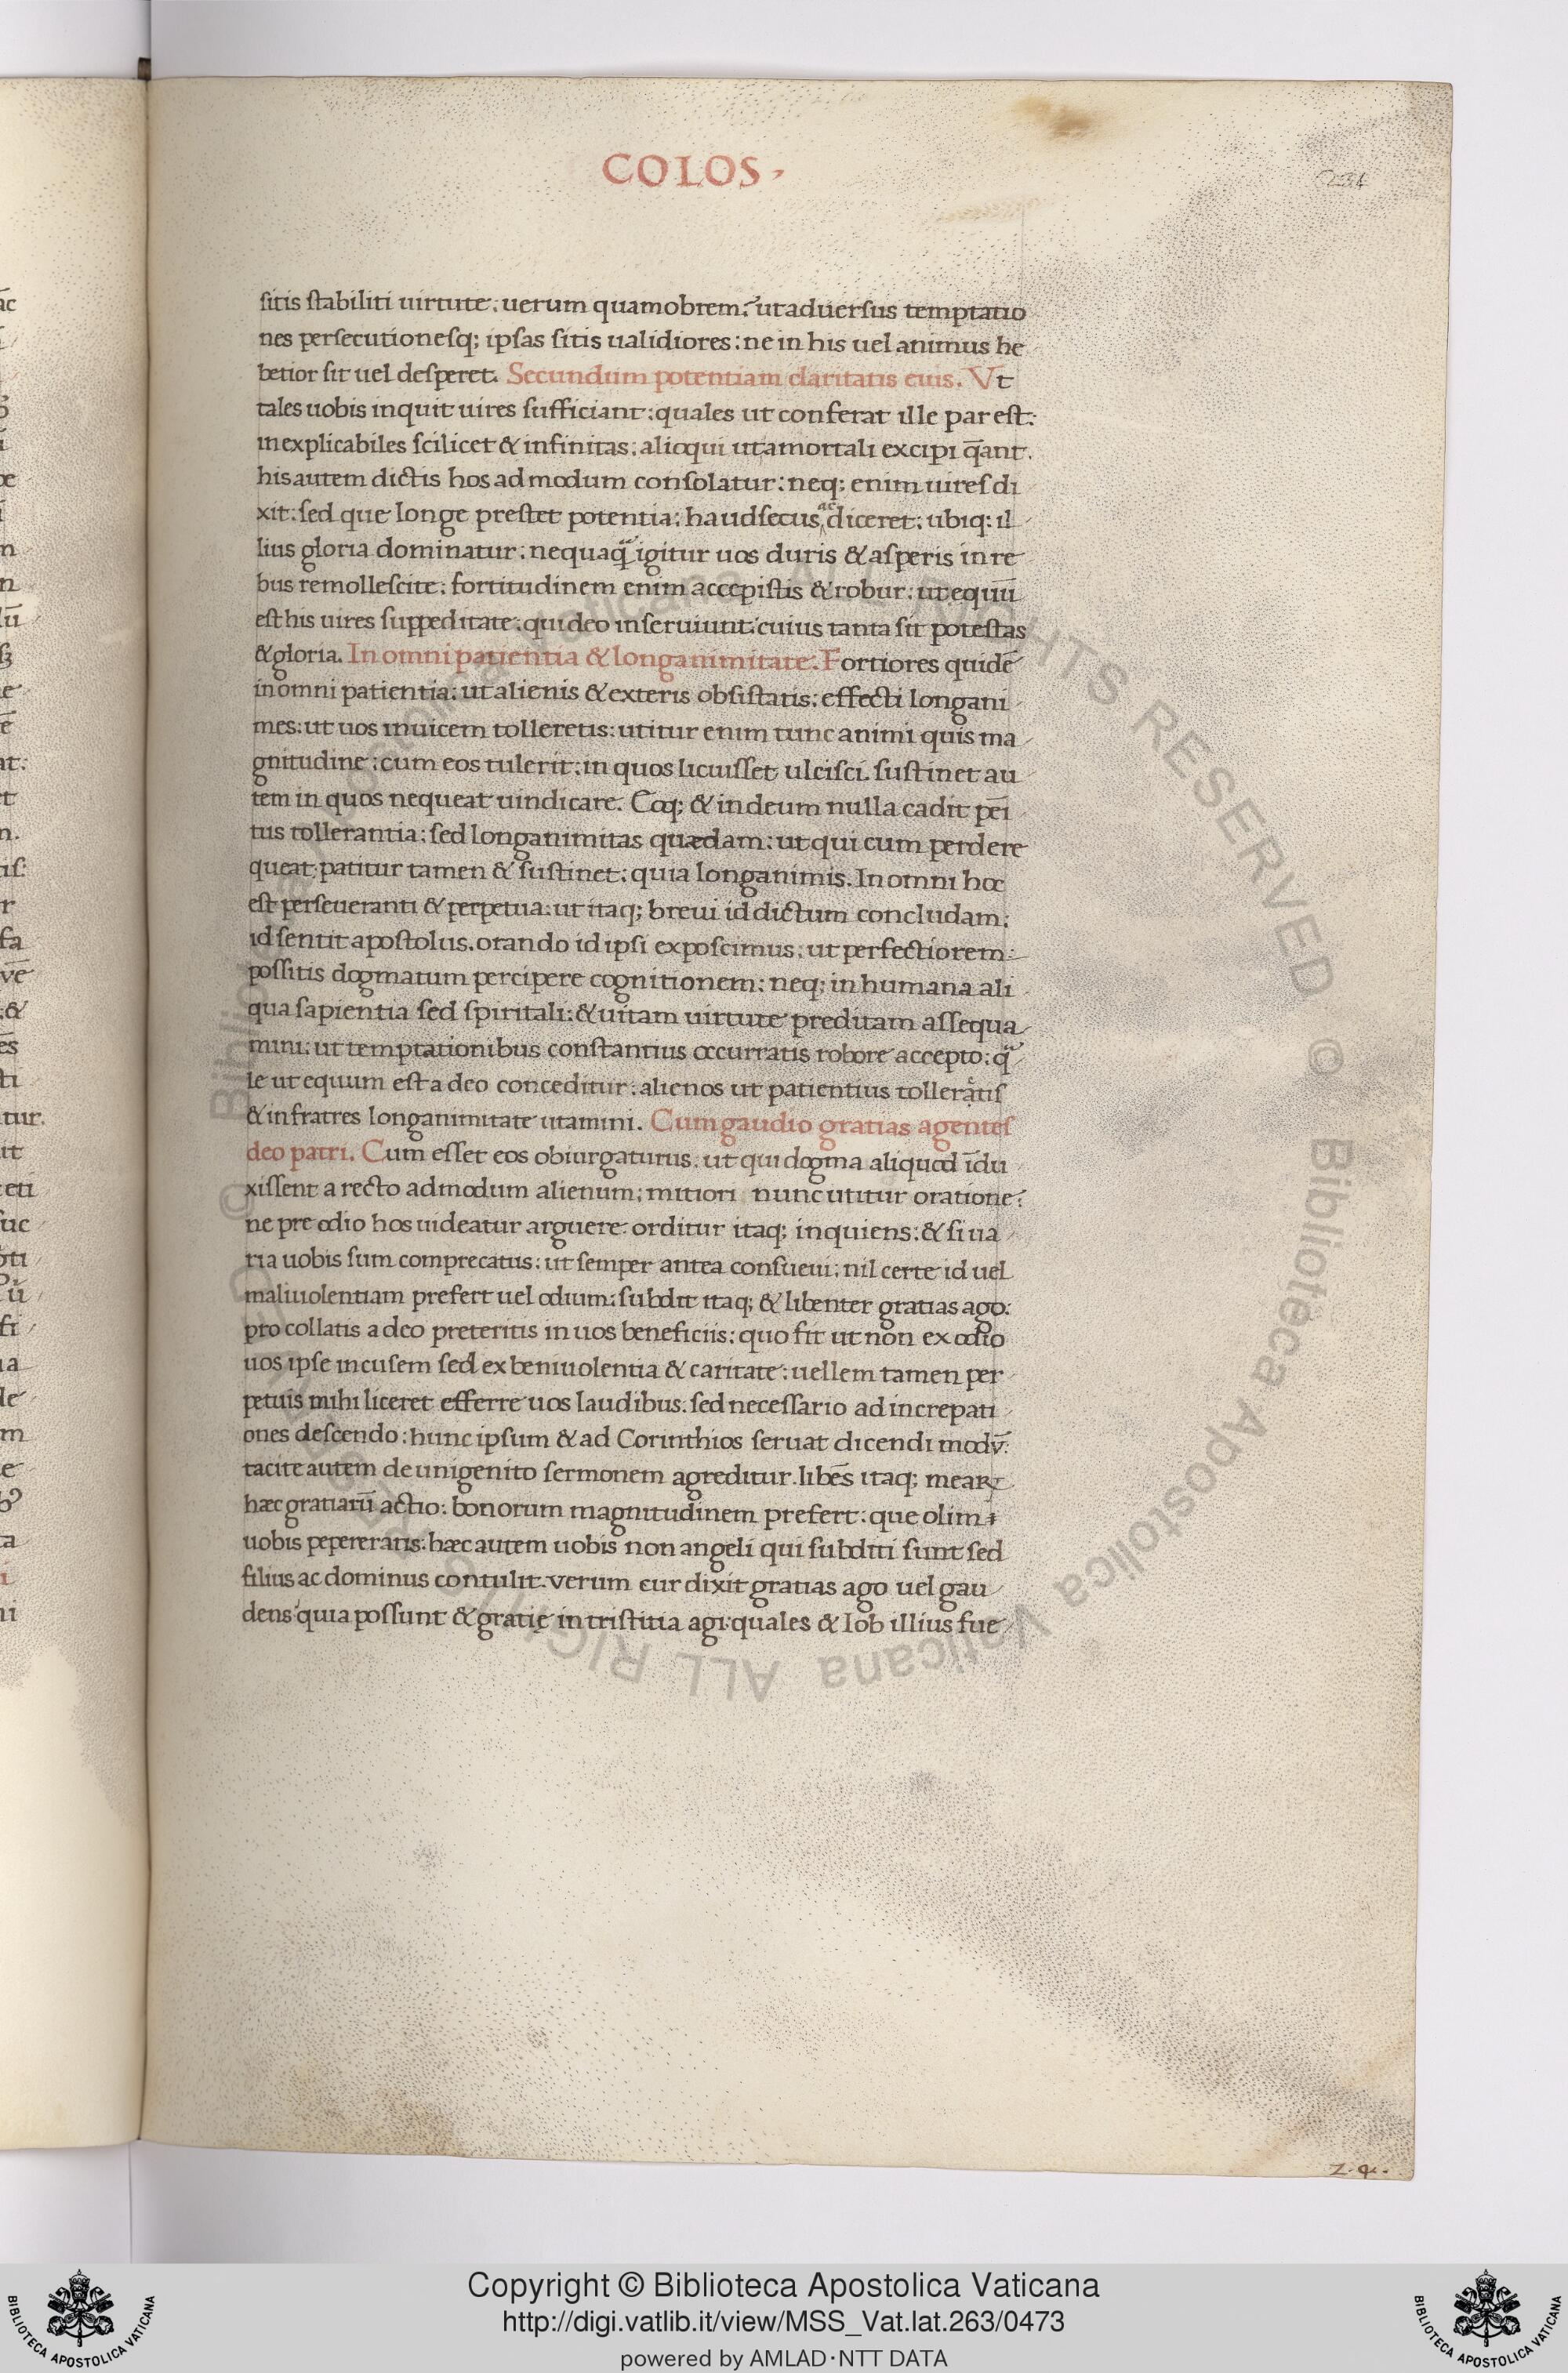 COLOS.
234
sitis stabiliti uirtute. uerum quamobrem? ut aduersus temptatio
nes persecutionesq; ipsas sitis ualidiores: ne in his uel animus he
betior sit uel desperet. Secundum potentiam claritatis euis. Vt
tales uobis inquit uires sufficiant: quales ut conferat ille par est:
inexplicabiles scilicet & infinitas: alioqui ut a mortali excipi q̄ant.
his autem dictis hos admodum consolatur: neq; enim uires di
xit: sed que longe prestet potentia: haud secus ac diceret: ubiq: il
lius gloria dominatur: nequaq̃ igitur uos duris & asperis in re
bus remollescite: fortitudinem enim accepistis & robur: ut equū
est his uires suppeditate: qui deo inseruiunt: cuius tanta sit potestas
& gloria. In omni patientia & longanimitate. Fortiores quidē
in omni patientia: ut alienis & exteris obsistatis: effecti longani
mes: ut uos inuicem tolleretis: utitur enim tunc animi quis ma
gnitudine: cum eos tulerit: in quos licuisset ulcisci. sustinet au
tem in quos nequeat uindicare. Eoq; & in deum nulla cadit pēi
tus tollerantia: sed longanimitas quædam: ut qui cum perdere
queat patitur tamen & sustinet: quia longanimis. In omni hoc
est perseueranti & perpetua: ut itaq; breui id dictum concludam:
id sentit apostolus. orando id ipsi exposcimus: ut perfectiorem
possitis dogmatum percipere cognitionem: neq; in humana ali
qua sapientia sed spiritali: & uitam uirtute preditam assequa
mini: ut temptationibus constantius occurratis robore accepto: q̃
le ut equum est a deo conceditur: alienos ut patientius tolleratis
& in fratres longanimitate utamini. Cum gaudio gratias agentes
deo patri. Cum esset eos obiurgaturus. ut qui dogma aliquod īdu
xissent a recto admodum alienum: mitiori nunc utitur oratione:
ne pre odio hos uideatur arguere. orditur itaq; inquiens: & si ua
ria uobis sum comprecatus: ut semper antea consueui: nil certe id uel
maliuolentiam prefert uel odium: subdit itaq; & libenter gratias ago:
pro collatis a deo preteritis in uos beneficiis: quo fit ut non ex odio
uos ipse incusem sed ex beniuolentia & caritate: uellem tamen per
petuis mihi liceret efferre uos laudibus. sed necessario ad increpati
ones descendo: hunc ipsum & ad Corinthios seruat dicendi modv̄:
tacite autem de unigenito sermonem agreditur. libēs itaq; meaꝝ
hæc gratiarū actio: bonorum magnitudinem prefert: que olim
uobis pepereratis: hæc autem uobis non angeli qui subditi sunt sed
filius ac dominus contulit. verum cur dixit gratias ago uel gau
dens? quia possunt & gratię in tristitia agi: quales & Iob illius fue
© Biblioteca Apostolica Vaticana ALL RIGHTS RESERVED © Biblioteca Apostolica Vaticana ALL RIGHTS RESERVED
Copyright © Biblioteca Apostolica Vaticana
http://digi.vatlib.it/view/MSS_Vat.lat.263/0473
powered by AMLAD·NTT DATA
BIBLIOTECA APOSTOLICA VATICANA
BIBLIOTECA APOSTOLICA VATICANA